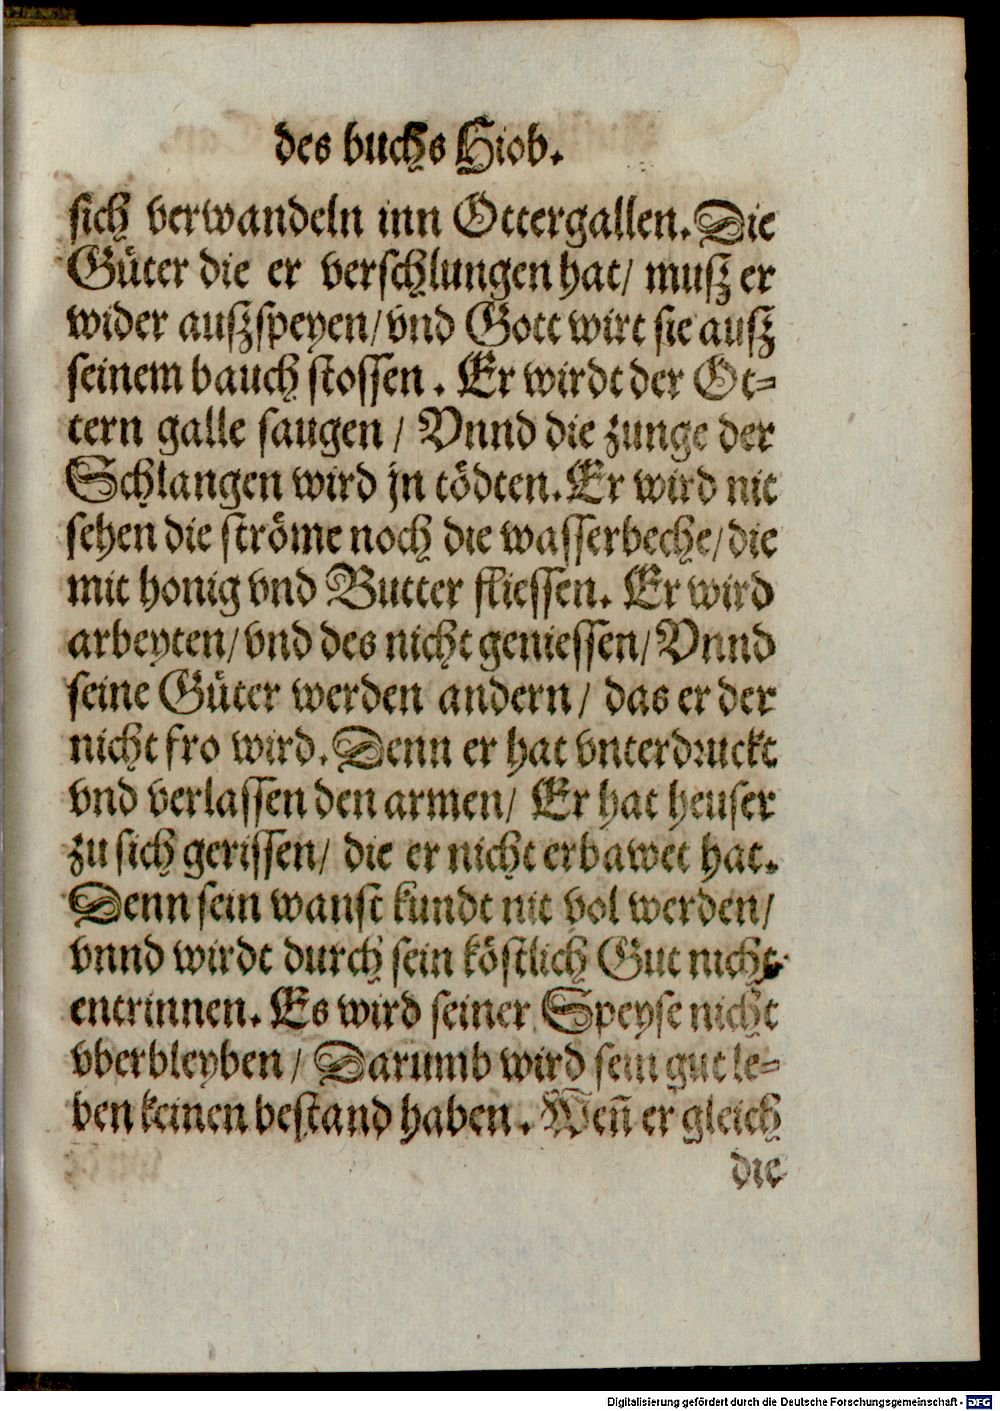 des buchs Hiob.
sich verwandeln inn Ottergallen. Die
Güter die er verschlungen hat/ muß er
wider außspeyen/ vnd Gott wirt sie auß
seinem bauch stossen. Er wirdt der Ot-
tern galle saugen / Vnnd die zunge der
Schlangen wird jn tödten. Er wird nit
sehen die ströme noch die wasserbeche/ die
mit honig vnd Butter fliessen. Er wird
arbeyten/ vnd des nicht geniessen/ Vnnd
seine Güter werden andern / das er der
nicht fro wird. Denn er hat vnterdruckt
vnd verlassen den armen/ Er hat heuser
zu sich gerissen/ die er nicht erbawet hat.
Denn sein wanst kundt nit vol werden/
vnnd wirdt durch sein köstlich Gut nicht
entrinnen. Es wird seiner Speyse nicht
vberbleyben / Darumb wird sein gut le-
ben keinen bestand haben. Weñ er gleich
die
Digitalisierung gefördert durch die Deutsche Forschungsgemeinschaft - DFG